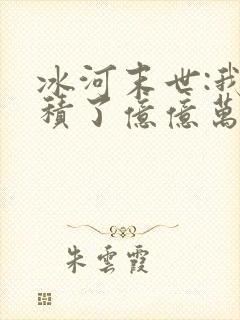 冰河末世:我
積了億億萬
朱雲霞